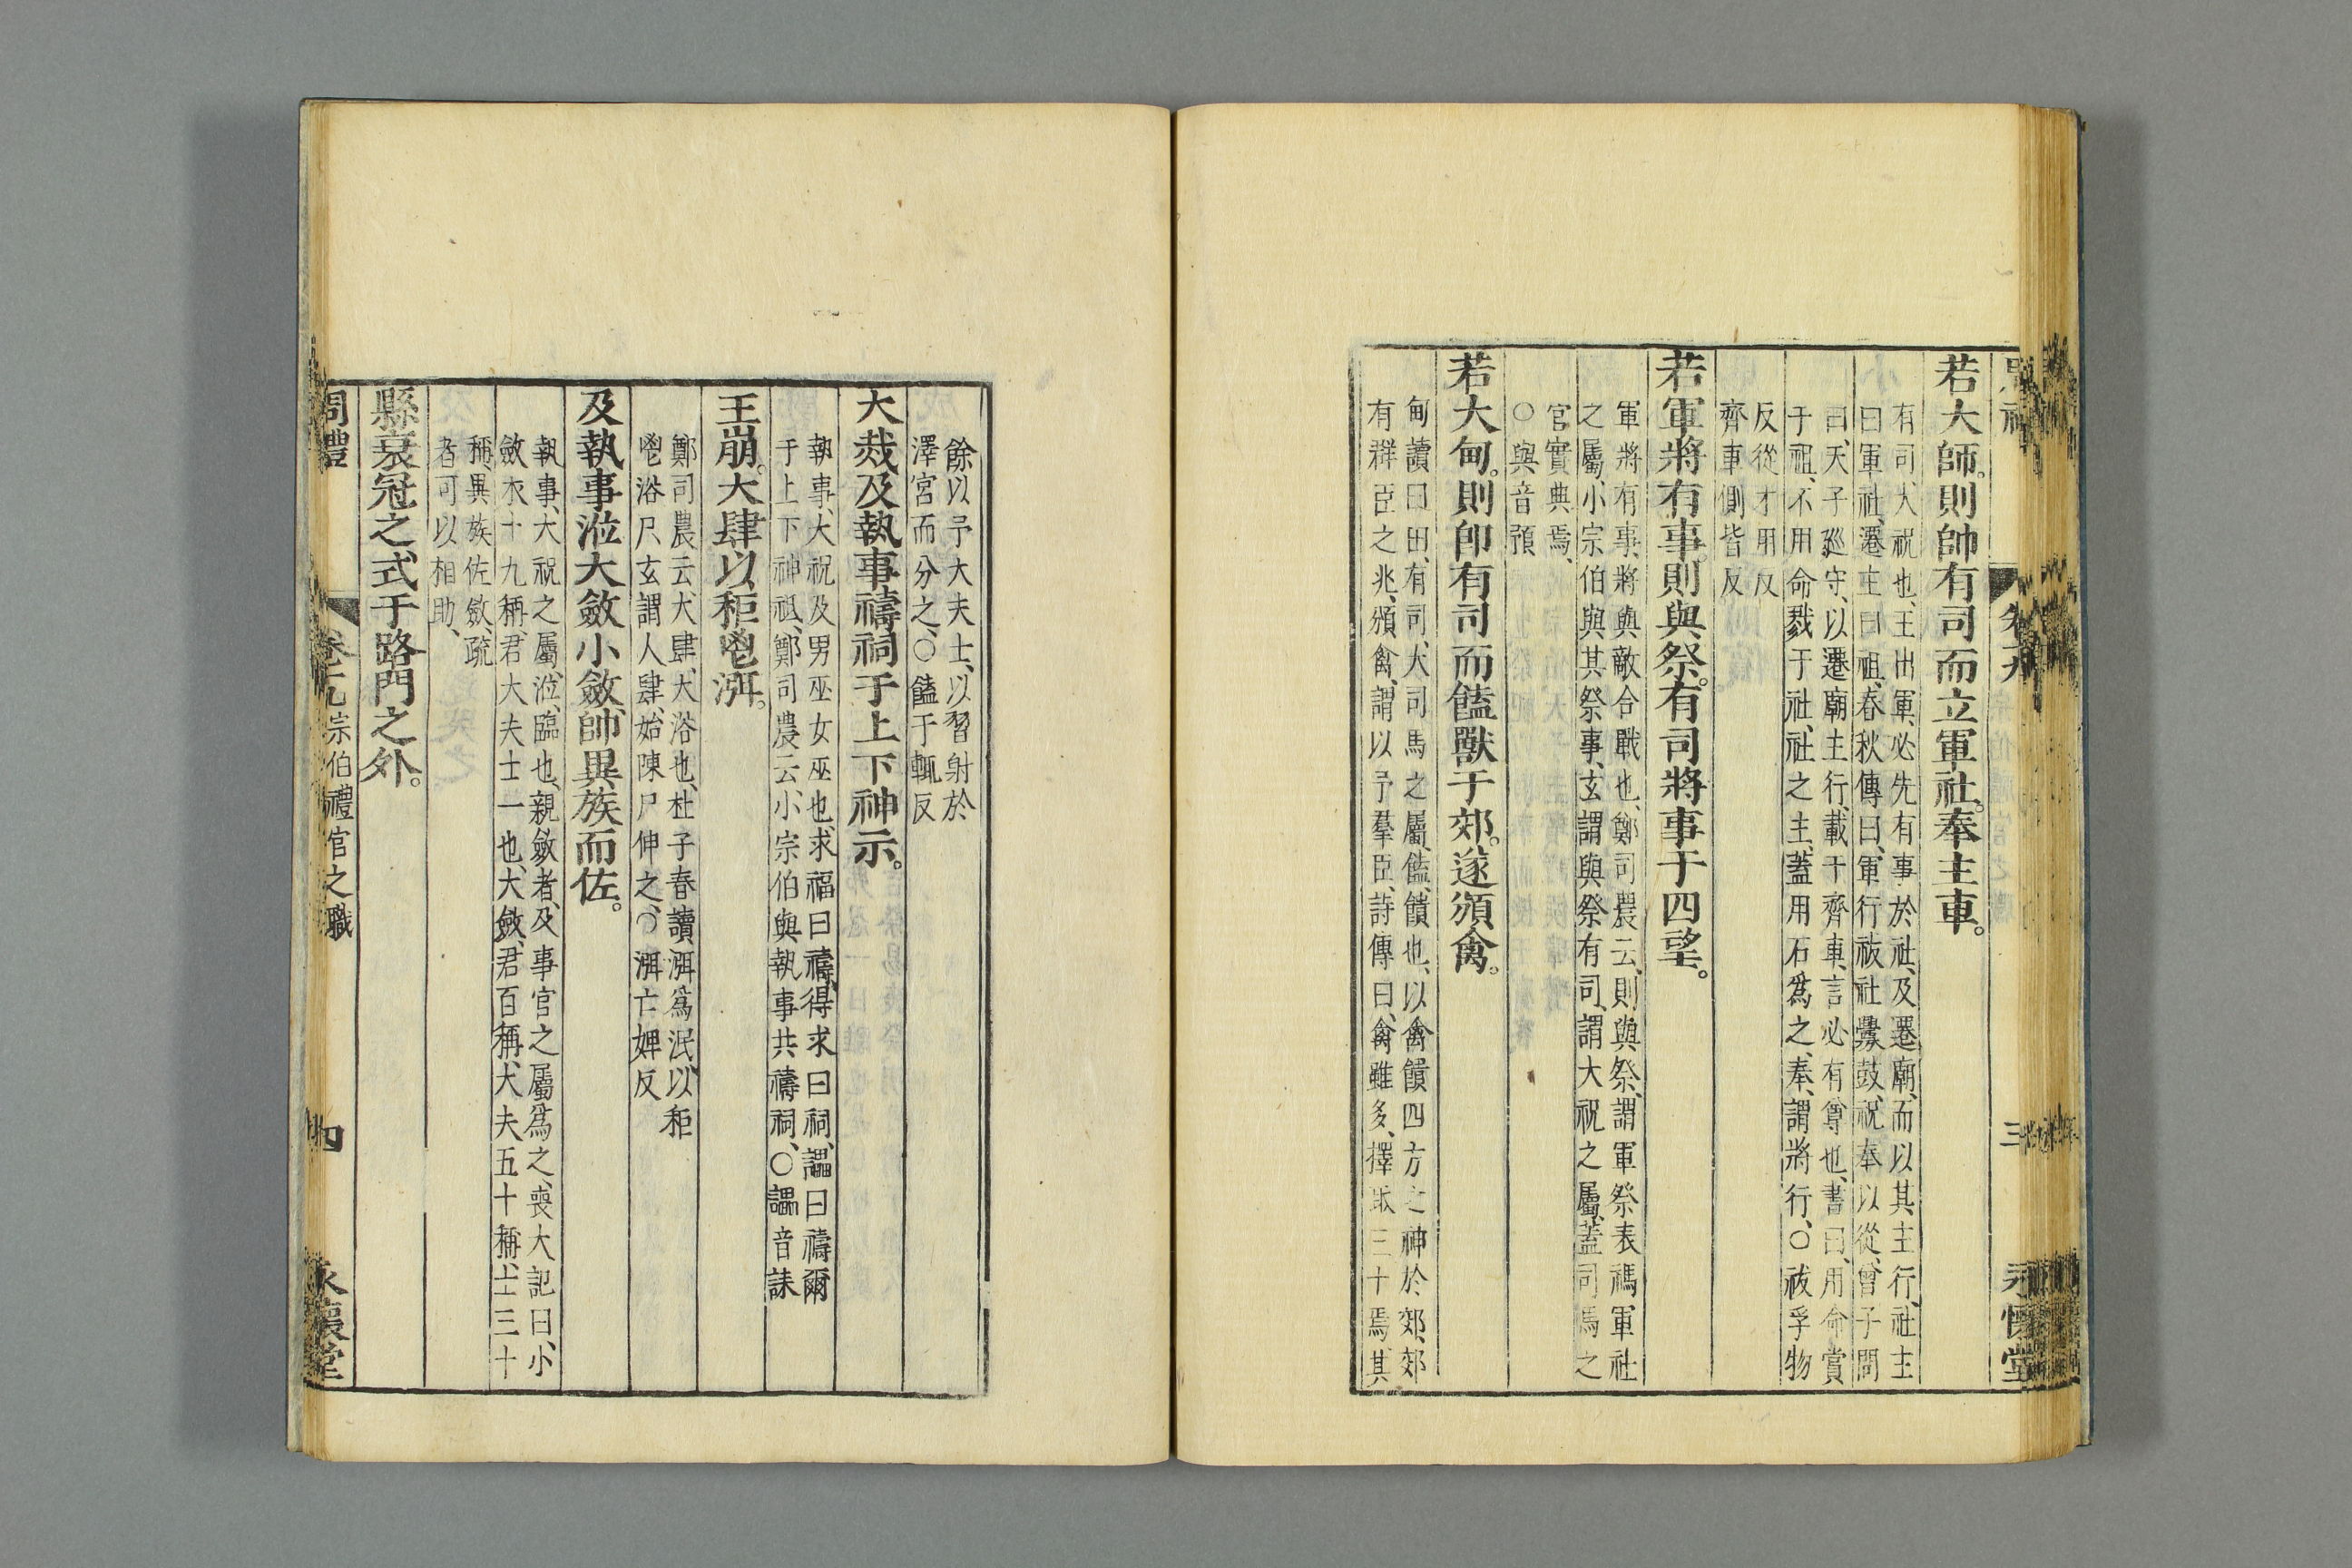 若大師。則帥有司而立軍社。奉主車。
有司、大祝也、王出軍、必先有事於社、及遷廟、而以其主行、社主
曰軍社、遷主曰祖、春秋傳曰、軍行祓社釁鼓、祝奉以從、曾子問
曰、天子廵守、以遷廟主行、載于齊車、言必有尊也、書曰、用命賞
于祖、不用命戮于社、社之主、蓋用石爲之、奉、謂將行、〇祓孚物
反從才用反
齊車側皆反
若軍將有事。則與祭。有司將事于四望。
軍將有事、將與敵合戰也、鄭司農云、則與祭、謂軍祭表禡軍社
之屬、小宗伯與其祭事、玄謂與祭有司、謂大祝之屬、蓋司馬之
官實典焉、
〇與音預
若大甸。則帥有司而饁獸于郊。遂頒禽。
甸讀曰田、有司、大司馬之屬、饁、饋也、以禽饋四方之神於郊、郊
有群臣之兆、頒禽、謂以予羣臣、詩傳曰、禽雖多、擇取三十焉、其
三
永懷堂
餘以予大夫士、以習射於
澤宮而分之、〇饁于輒反
大烖及執事禱祠于上下神示。
執事、大祝及男巫女巫也、求福曰禱、得求曰祠、讄曰禱爾
于上下神祇、鄭司農云、小宗伯與執事共禱祠、〇讄音誄
王崩。大肆以秬鬯渳。
鄭司農云、大肆、大浴也、杜子春讀渳爲泯、以秬
鬯浴尸玄謂人肆、始陳尸伸之、〇渳亡婢反
及執事涖大斂小斂、帥異族而佐。
執事、大祝之屬、涖、臨也、親斂者、及事官之屬爲之、喪大記曰、小
斂衣十九稱、君大夫士一也、大斂、君百稱、大夫五十稱、士三十
稱、異族佐斂、疏
者可以相助、
縣衰冠之式于路門之外。
周禮
卷十九宗伯禮官之職
四
永懷堂